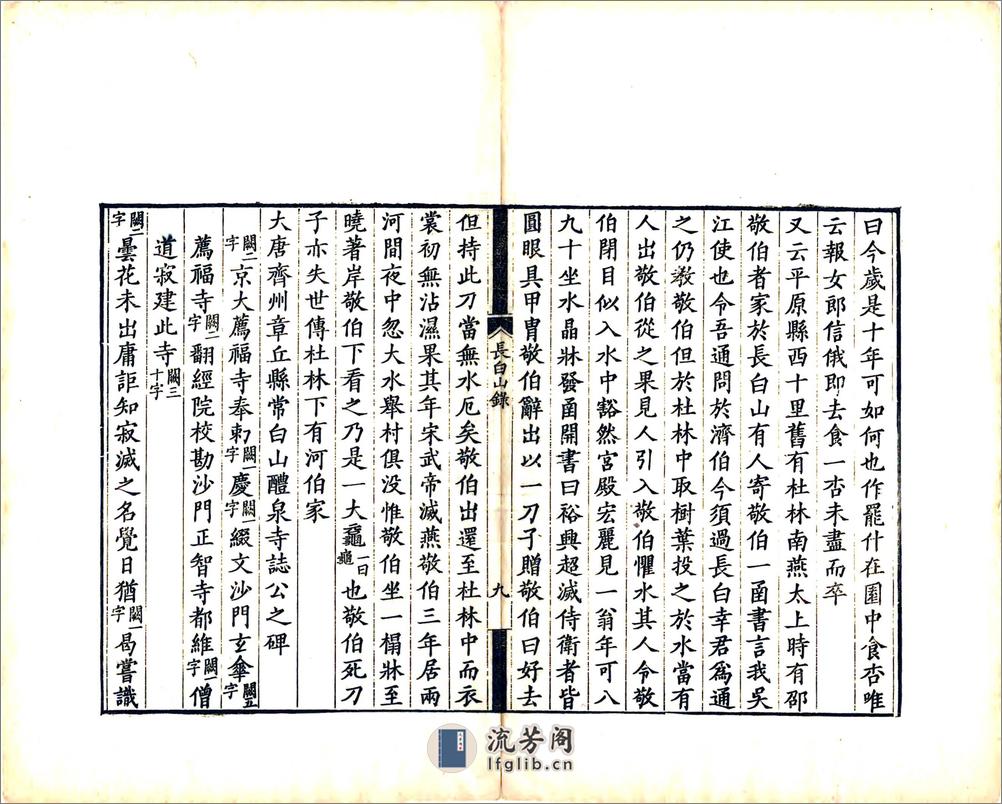 曰今歲是十年可如何也作罷什在園中食杏唯
云報女郎信俄即去食一杏未盡而卒
又云平原縣西十里舊有杜林南燕太上時有邵
敬伯者家於長白山有人寄敬伯一函書言我吳
江使也令吾通問於濟伯今須過長白幸君爲通
之仍教敬伯但於杜林中取樹葉投之於水當有
人出敬伯從之果見人引入敬伯懼水其人令敬
伯閉目似入水中豁然宮殿宏麗見一翁年可八
九十坐水晶牀發函開書曰裕興超滅侍衛者皆
圓眼具甲冑敬伯辭出以一刀子贈敬伯曰好去
長白山錄
九
但持此刀當無水厄矣敬伯出還至杜林中而衣
裳初無沾濕果其年宋武帝滅燕敬伯三年居兩
河間夜中忽大水舉村俱没惟敬伯坐一榻牀至
曉著岸敬伯下看之乃是一大黿一曰龜也敬伯死刀
子亦失世傳杜林下有河伯家
大唐齊州章丘縣常白山醴泉寺誌公之碑
闕二字京大薦福寺奉勑闕一字慶闕一字綴文沙門玄傘闕五字
薦福寺闕二字翻經院校勘沙門正智寺都維闕一字僧
道寂建此寺闕三十字
闕二字曇花未出庸詎知寂滅之名覺日猶闕一字曷嘗識
流芳阁
lfglib.cn